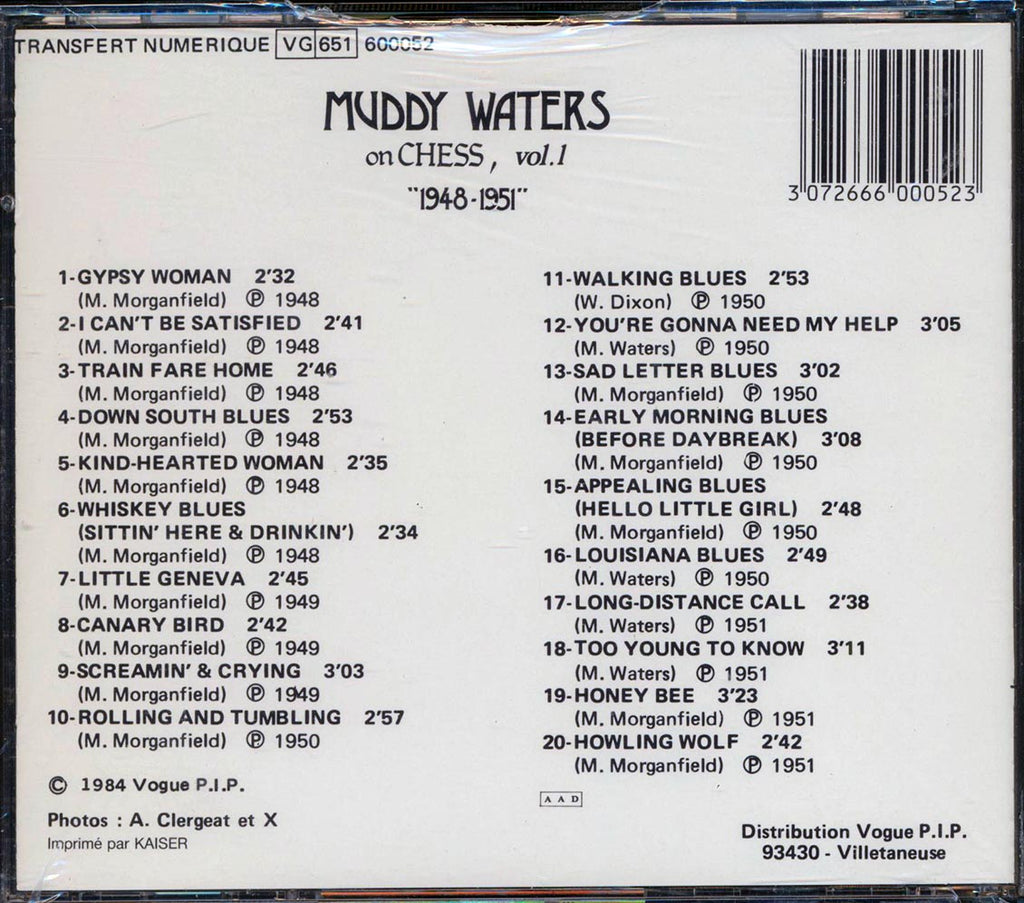 TRANSFERT NUMERIQUE VG 651 600052
MUDDY WATERS
on CHESS, vol.1
"1948-1951"
3 072666 000523
1-GYPSY WOMAN 2'32
(M. Morganfield) Ⓟ 1948
2-I CAN'T BE SATISFIED 2'41
(M. Morganfield) Ⓟ 1948
3-TRAIN FARE HOME 2'46
(M. Morganfield) Ⓟ 1948
4-DOWN SOUTH BLUES 2'53
(M. Morganfield) Ⓟ 1948
5-KIND-HEARTED WOMAN 2'35
(M. Morganfield) Ⓟ 1948
6-WHISKEY BLUES
(SITTIN' HERE & DRINKIN') 2'34
(M. Morganfield) Ⓟ 1948
7-LITTLE GENEVA 2'45
(M. Morganfield) Ⓟ 1949
8-CANARY BIRD 2'42
(M. Morganfield) Ⓟ 1949
9-SCREAMIN' & CRYING 3'03
(M. Morganfield) Ⓟ 1949
10-ROLLING AND TUMBLING 2'57
(M. Morganfield) Ⓟ 1950
11-WALKING BLUES 2'53
(W. Dixon) Ⓟ 1950
12-YOU'RE GONNA NEED MY HELP 3'05
(M. Waters) Ⓟ 1950
13-SAD LETTER BLUES 3'02
(M. Morganfield) Ⓟ 1950
14-EARLY MORNING BLUES
(BEFORE DAYBREAK) 3'08
(M. Morganfield) Ⓟ 1950
15-APPEALING BLUES
(HELLO LITTLE GIRL) 2'48
(M. Morganfield) Ⓟ 1950
16-LOUISIANA BLUES 2'49
(M. Waters) Ⓟ 1950
17-LONG-DISTANCE CALL 2'38
(M. Waters) Ⓟ 1951
18-TOO YOUNG TO KNOW 3'11
(M. Waters) Ⓟ 1951
19-HONEY BEE 3'23
(M. Morganfield) Ⓟ 1951
20-HOWLING WOLF 2'42
(M. Morganfield) Ⓟ 1951
© 1984 Vogue P.I.P.
Photos : A. Clergeat et X
Imprimé par KAISER
A A D
Distribution Vogue P.I.P.
93430 - Villetaneuse